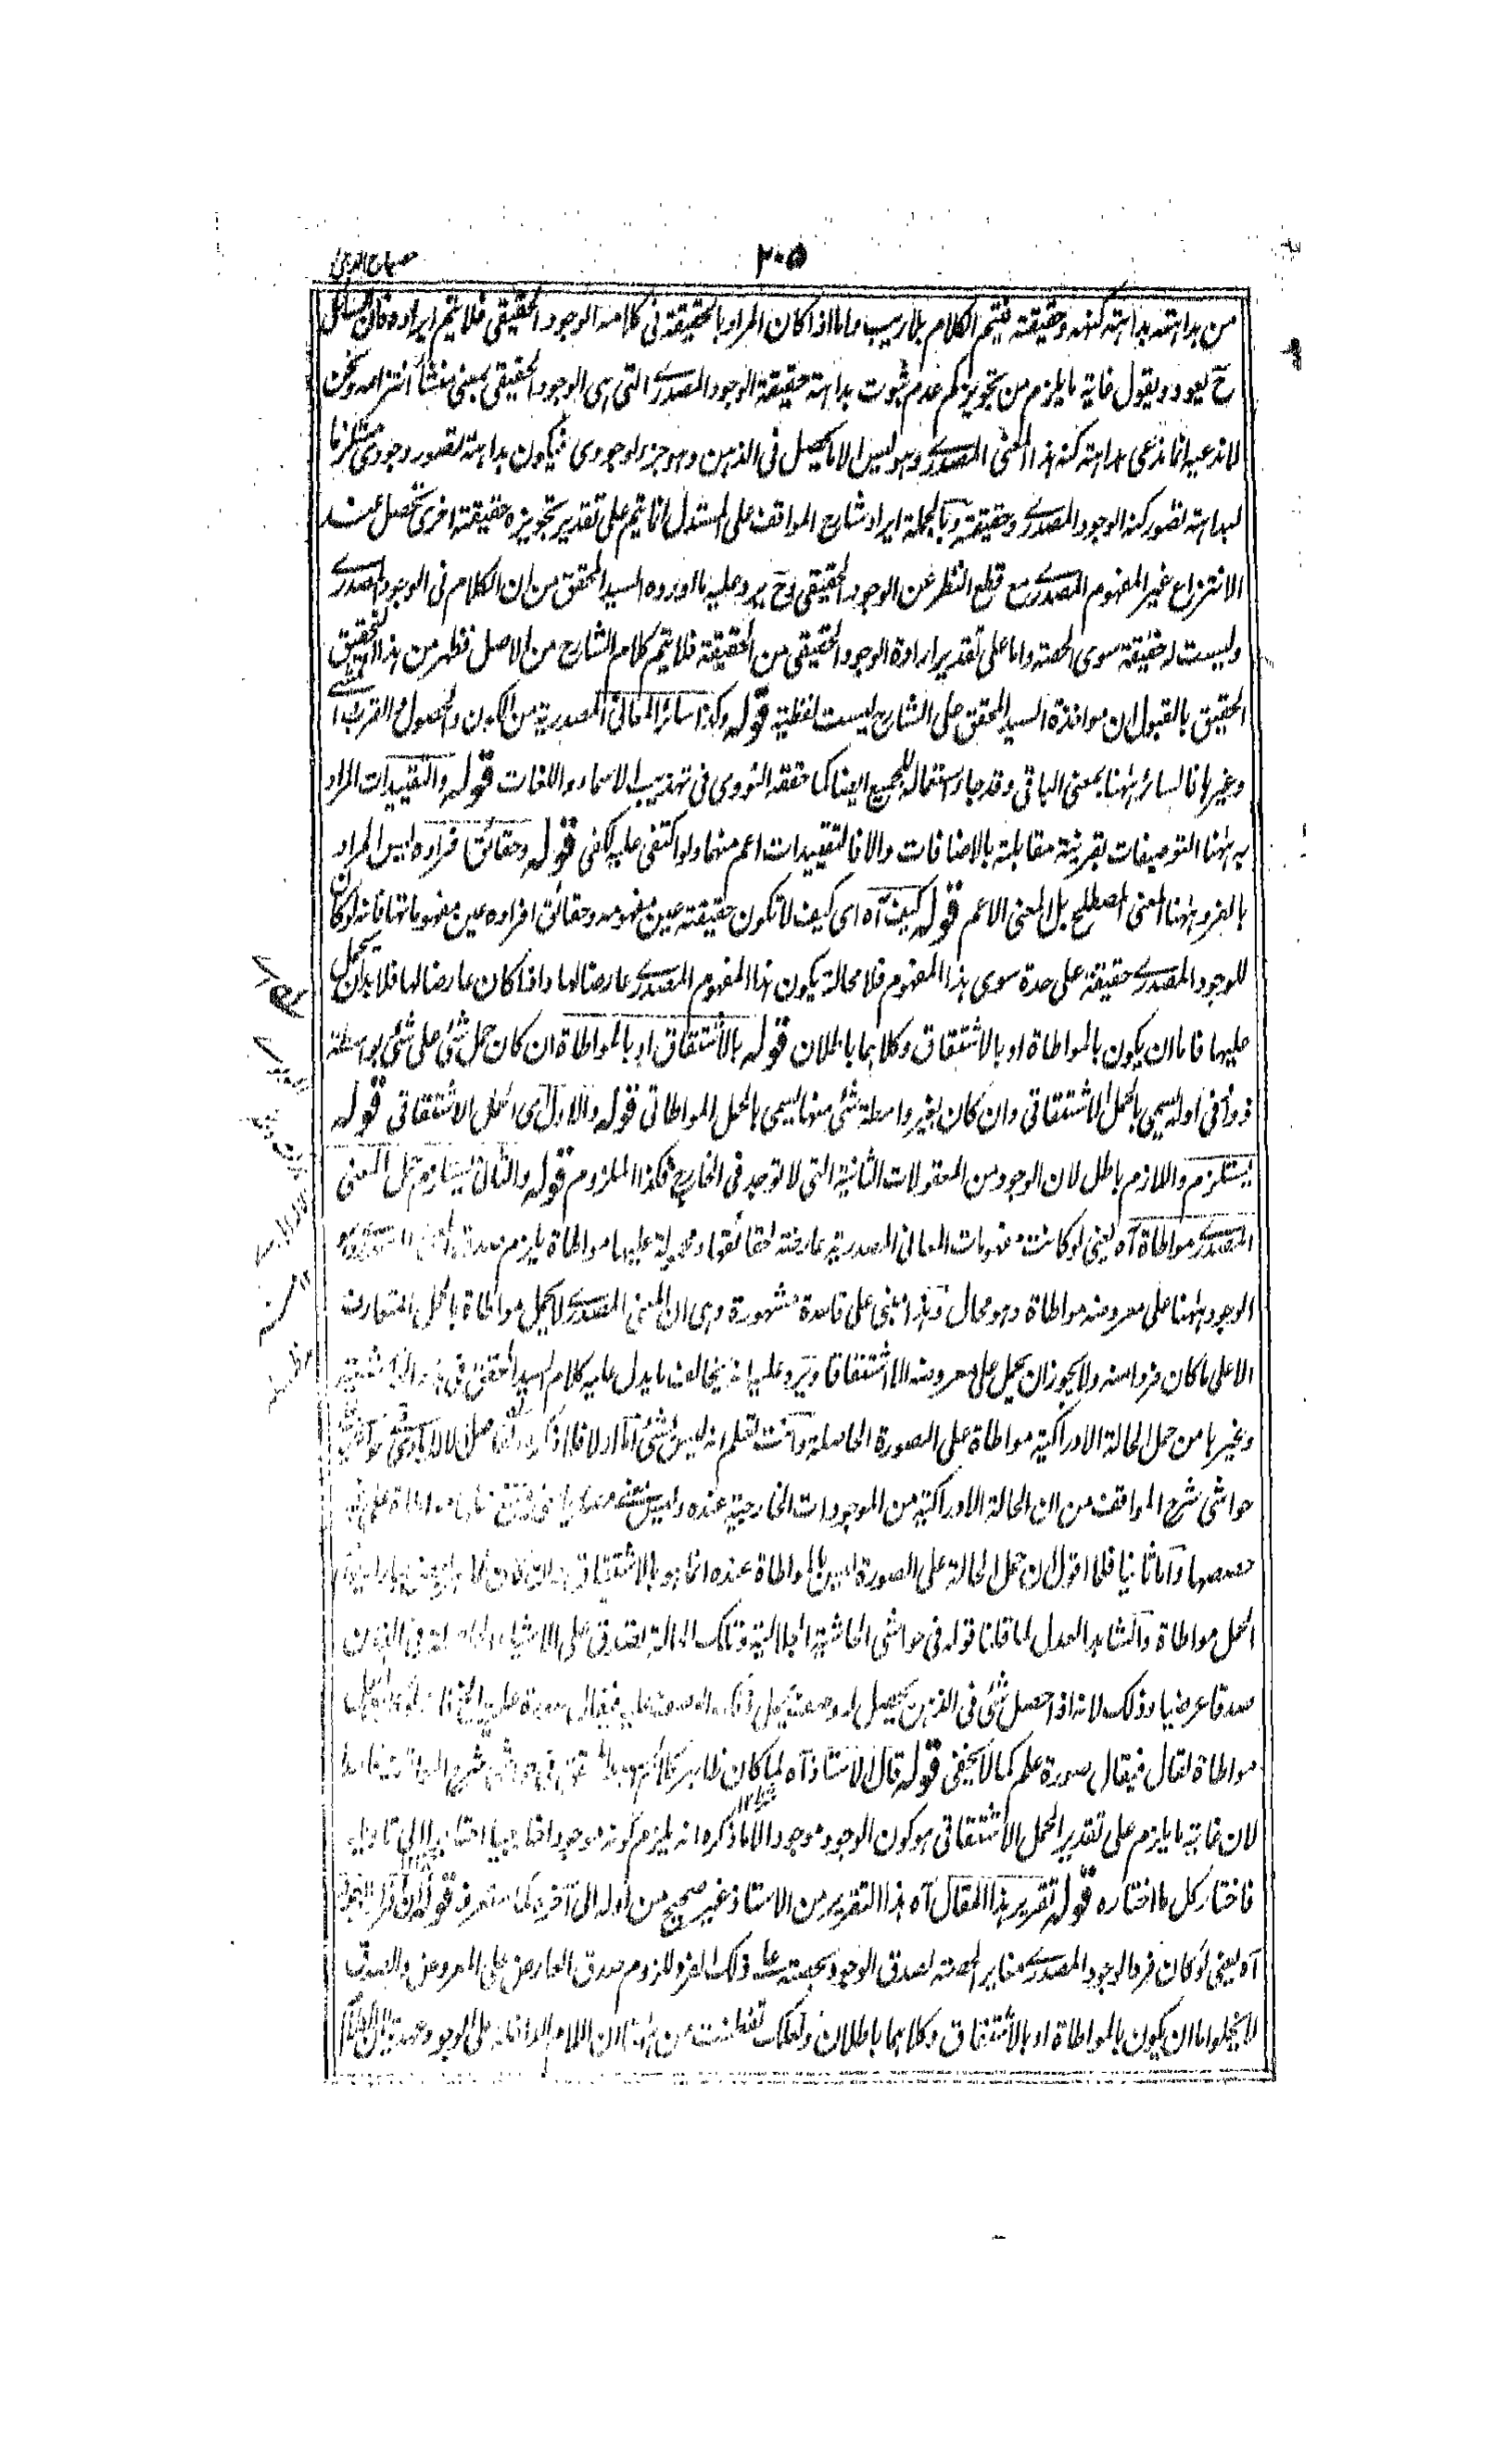 ٢٠٥
من بداهته بداهته كنهه وحقيقته فيتم الكلام بلا ريب واما اذا كان المراد بالحقيقة فى كلامه الوجود الحقيقى فلا يتم ايراده فان المستدل
ح يعود ويقول غاية ما يلزم من تجويزكم عدم ثبوت بداهة حقيقة الوجود المصدرے التى هى الوجود الحقيقى بمعنى منشأ انتزاعه ونحن
لا ندعيه انما ندعى بداهة كنه هذا المعنى المصدرے وهو ليس الا ما يحصل فى الذهن وهو جزء لوجودى فيكون بداهة تصور وجودى مستلزما
لبداهة تصور كنه الوجود المصدرے وحقيقته وبالجملة ايراد شارح المواقف على المستدل انما يتم على تقدير تجويزه حقيقة اخرى تحصل عند
الانتزاع غير المفهوم المصدرے مع قطع النظر عن الوجود الحقيقى وح يرد عليه ما اورده السيد المحقق من ان الكلام فى الوجود المصدرے
وليست له حقيقة سوى الحصة واما على تقدير ارادة الوجود الحقيقى من الحقيقة فلا يتم كلام الشارح من الاصل فظهر من هذا التحقيق
الحقيق بالقبول ان مواخذة السيد المحقق على الشارح ليست لفظية قوله وكذا سائر المعانى المصدرية من الكون والحصول والقرب
وغيرها فالسائر ههنا بمعنى الباقى وقد جاء استعماله للجميع ايضا كما حققه النووى فى تهذيب الاسماء واللغات قوله والتقييدات المراد
به ههنا التوصيفات بقرينة مقابلته بالاضافات والا فالتقييدات اعم منهما ولو اكتفى عليه لكفى قوله وحقائق افراده ليس المراد
بالفرد ههنا المعنى المصطلح بل المعنى الاعم قوله كيف آه اى كيف لا تكون حقيقته عين مفهومه وحقائق افراده عين مفهوماتها فانه لو كان
للوجود المصدرے حقيقة على حدة سوى هذا المفهوم فلا محالة يكون هذا المفهوم المصدرے عارضا لها واذا كان عارضا لها فلا بد ان يحمل
عليها فاما ان يكون بالمواطاة او بالاشتقاق وكلاهما باطلان قوله بالاشتقاق او بالمواطاة ان كان حمل شئ على شئ بواسطة
ذو او فى او له يسمى بالحمل الاشتقاقى وان كان بغير واسطة شئ منها يسمى بالحمل المواطاتى قوله والاول اى الحمل الاشتقاقى قوله
يستلزم واللازم باطل لان الوجود من المعقولات الثانية التى لا توجد فى الخارج فكذا الملزوم قوله والثانى يستلزم حمل المعنى
المصدرے مواطاة آه يعنى لو كانت مفهومات المعانى المصدرية عارضة لحقائقها ومحمولة عليها مواطاة يلزم صدق
الوجود ههنا على معروضه مواطاة وهو محال وهذا مبنى على قاعدة مشهورة وهى ان المعنى المصدرے لا يحمل مواطاة بالحمل المتعارف
الا على ما كان فردا منه ولا يجوز ان يحمل على معروضه الا اشتقاقا ويرد عليه انه يخالف ما يدل عليه كلام السيد المحقق فى
وغيرها من حمل الحالة الادراكية مواطاة على الصورة الحاصلة وانت تعلم انه ليس بشئ اما اولا فلما ذكره
حواشى شرح المواقف من ان الحالة الادراكية من الموجودات الخارجية عنده وليس
حصصها واما ثانيا فلما اقول ان حمل الحالة على الصورة ليس بالمواطاة عنده انما هو بالاشتقاق
الحمل مواطاة والشاهد العدل لما قلنا قوله فى حواشى الحاشية الجلالية وتلك الحالة تصدق على الاشياء الحاصلة فى الذهن
صدقا عرضيا وذلك لانه اذا حصل شئ فى الذهن يحصل له وصف يحمل ذلك الوصف عليه فيقال
مواطاة لقال فيقال صورة علم كما لا يخفى قوله قال الاستاذ آه لما كان ظاهر كلام
لان غاية ما يلزم على تقدير الحمل الاشتقاقى هو كون الوجود موجودا لا ما ذكره انه يلزم كونه موجودا خارجيا احتاج الى تاويله
فاختار كل ما اختاره قوله تقرير هذا المقال آه هذا التقرير من الاستاذ غير صحيح من اوله الى آخره كما ستعرف قوله
آه يعنى لو كان فرد الوجود المصدرے مغاير الحصة لصدق الوجود بحصته على ذلك الفرد للزوم صدق العارض على المعروض والصدق
لا يخلو اما ان يكون بالمواطاة او بالاشتقاق وكلاهما باطلان ولعلك تفطنت من ههنا ان اللام الداخلة على الوجود